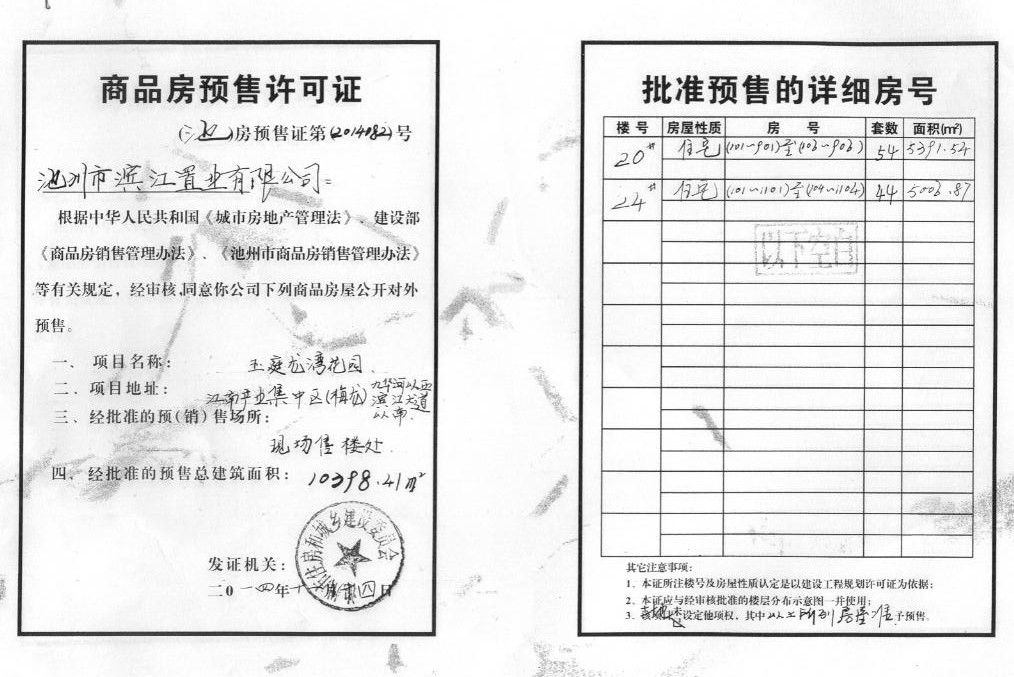 商品房预售许可证
(池)房预售证第(2014082)号
池州市滨江置业有限公司:
根据中华人民共和国《城市房地产管理法》、建设部
《商品房销售管理办法》、《池州市商品房销售管理办法》
等有关规定，经审核,同意你公司下列商品房屋公开对外
预售。
一、项目名称: 玉庭龙湾花园
二、项目地址: 江南产业集中区(梅龙)九华河以西
滨江大道
以南
三、经批准的预(销)售场所:
现场售楼处
四、经批准的预售总建筑面积: 10398.41m²
发证机关:
二0一四年十 月 四日
批准预售的详细房号
楼号 房屋性质 房号 套数 面积(m²)
20# 住宅 (101~901)至(103~903) 54 5391.54
24# 住宅 (101~1101)至(104~1104) 44 5006.87
以下空白
其它注意事项:
1、本证所注楼号及房屋性质认定是以建设工程规划许可证为依据;
2、本证应与经审核批准的楼层分布示意图一并使用;
3、设定他项权，其中以上所列房屋准予预售。